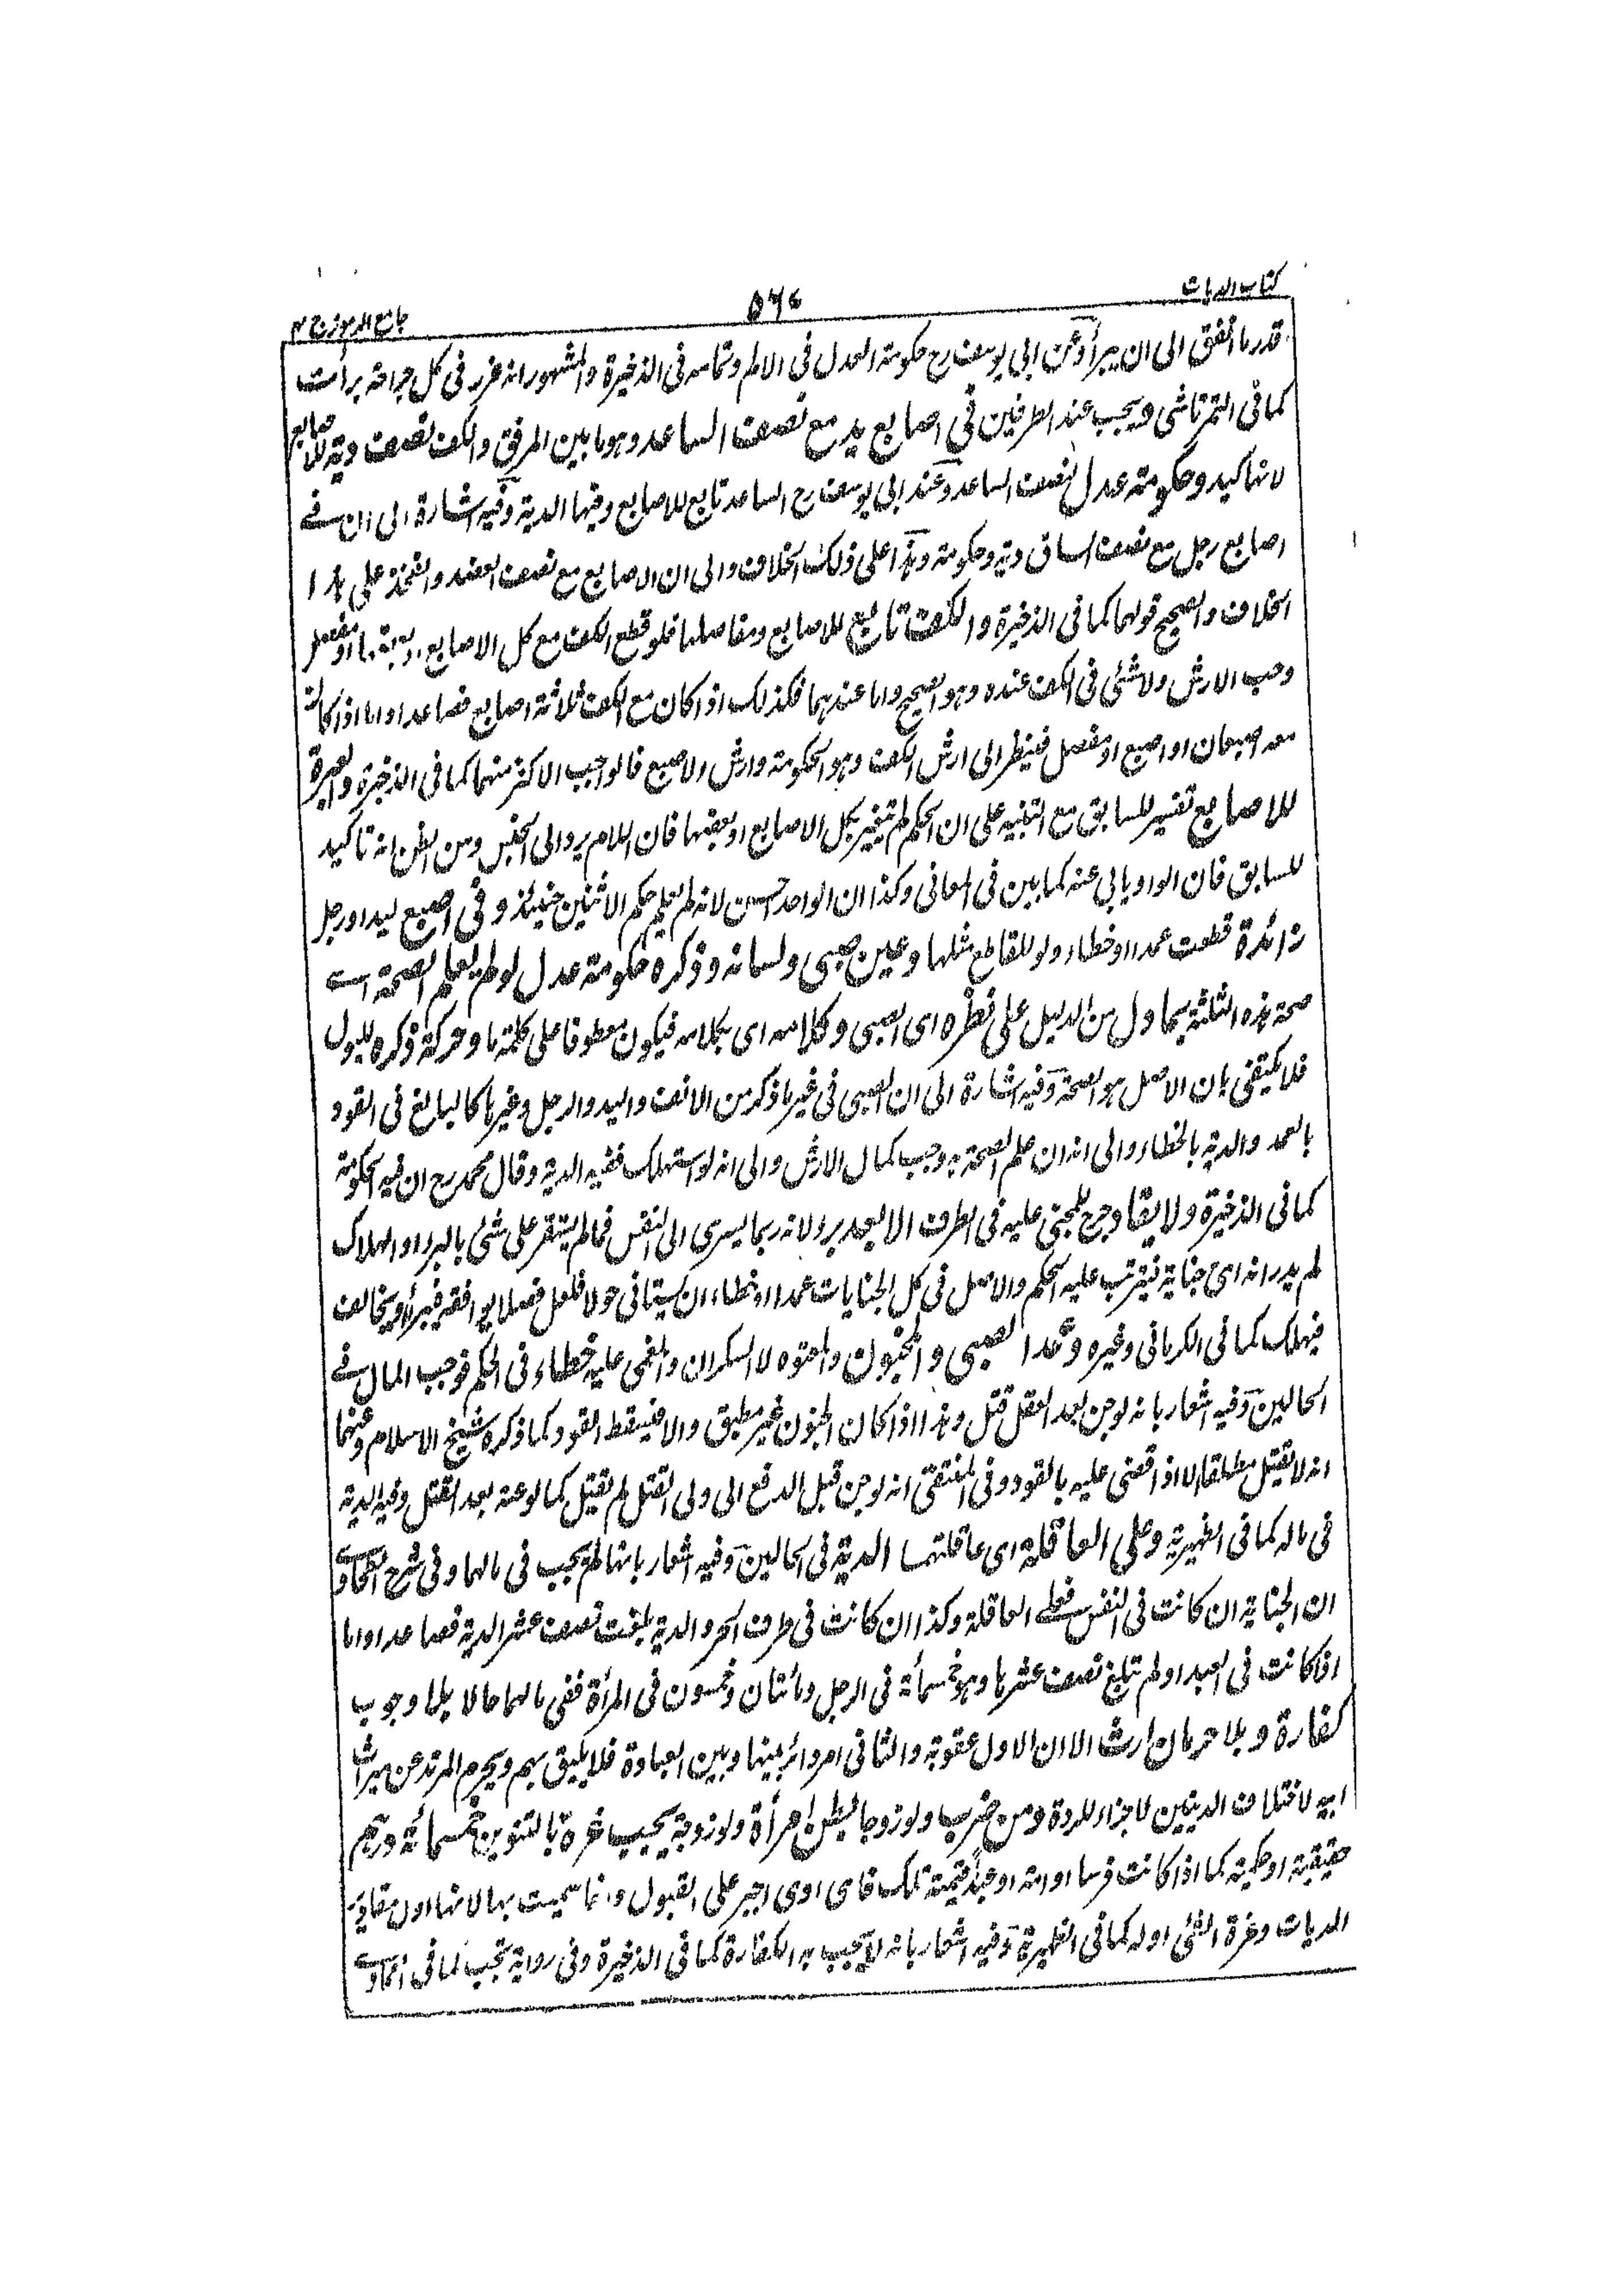 كتاب الديات
٥٦٠
جامع الرموز ج ٣
قدر ما انفق الى ان يبرأ وعن ابى يوسف رح حكومة العدل فى الالم وتمامه فى الذخيرة والمشهور انه عزر فى كل جراحة برأت
كما فى التمرتاشى ويجب عند الطرفين فى اصابع يد مع نصف الساعد وهو ما بين المرفق والكف نصف دية للاصابع
لانها كيد وحكومة عدل لنصف الساعد وعند ابى يوسف رح الساعد تابع للاصابع وفيها الدية وفيه اشارة الى ان فے
اصابع رجل مع نصف الساق دية وحكومة وهذا على ذلك الخلاف والى ان الاصابع مع نصف العضد والفخذ على هذا
الخلاف والصحيح قولهما كما فى الذخيرة والكف تابع للاصابع ومفاصلها فلو قطع الكف مع كل الاصابع او مفصل
وجب الارش ولا شئ فى الكف عنده وهو الصحيح واما عندهما فكذلك اذا كان مع الكف ثلاثة اصابع فصاعدا واما اذا كانت
معه اصبعان او اصبع او مفصل فينظر الى ارش الكف وهو الحكومة وارش الاصبع فالواجب الاكثر منهما كما فى الذخيرة والعبرة
للاصابع تفسير للسابق مع التنبيه على ان الحكم لم يتغير بكل الاصابع او بعضها فان اللام يرد الى الجنس ومن الظن انه تاكيد
للسابق فان الواو يابى عنه كما بين فى المعانى وكذا ان الواحد احسن لانه لم يعلم حكم الاثنين حينئذ وفى اصبع ليد او رجل
زائدة قطعت عمدا او خطاء ولو للقاطع مثلها وعين صبى ولسانه وذكره حكومة عدل لو لم يعلم الصحة اے
صحة هذه الثلثة بما دل من الدليل على نظره اى الصبى وكلامه اى بكلامه فيكون معطوفا على كلمة ما وحركة ذكره للبول
فلا يكتفى بان الاصل هو الصحة وفيه اشارة الى ان الصبى فى غير ما ذكر من الانف واليد والرجل وغيرها كالبالغ فى القود
بالعمد والدية بالخطاء والى انه ان علم الصحة به وجب كمال الارش والى انه لو استهلك ففيه الدية وقال محمد رح ان فيه الحكومة
كما فى الذخيرة ولا يقاد جرح للمجنى عليه فى الطرف الا بعد برء لانه ربما يسرى الى النفس فما لم يستقر على شئ بالبرء او الهلاك
لم يدر انه اى جناية فيترتب عليه الحكم والاصل فى كل الجنايات عمدا او خطاء ان يستانى حولا فلعل فصلا يوافقه فيبرأ او يخالف
فيهلك كما فى الكرمانى وغيره وعمد الصبى والمجنون والمعتوه لا السكران والمغمى عليه خطاء فى الحكم فوجب المال فے
الحالين وفيه اشعار بانه لو جن بعد العقل قتل وهذا اذا كان الجنون غير مطبق والا فيسقط القود كما ذكره شيخ الاسلام وعنهما
انه لا يقتل مطلقا الا اذا قضى عليه بالقود وفى المنتقى انه لو جن قبل الدفع الى ولى القتل لم يقتل كما لو عته بعد القتل وفيه الدية
فى ماله كما فى الظهيرية وعلى العاقلة اى عاقلتهما الدية فى الحالين وفيه اشعار بانها لم يجب فى مالهما وفى شرح الطحاوے
ان الجناية ان كانت فى النفس فعلے العاقلة وكذا ان كانت فى طرف الحر والدية بلغت نصف عشر الدية فصاعدا واما
اذا كانت فى العبد او لم تبلغ نصف عشرها وهو خمسمأة فى الرجل ومائتان وخمسون فى المرأة ففى مالهما حالا بلا وجوب
كفارة وبلا حرمان ارث الا ان الاول عقوبة والثانى امر دائر بينها وبين العبادة فلا يليق بهم ويحرم المرتد عن ميراث
ابيه لاختلاف الدينين لا جزاء للردة ومن ضرب ولو زوجا بطن امرأة ولو زوجة يجب غرة بالتنوين خمسمائة درهم
حقيقية او حكمية كما اذا كانت فرسا او امة او عبدا قيمته تلك فاى ادى اجبر على القبول وانما سميت بها لانها اول مقادير
الديات وغرة الشئ اوله كما فى الظهيرية وفيه اشعار بانه لا يجب به الكفارة كما فى الذخيرة وفى رواية يجب لما فى